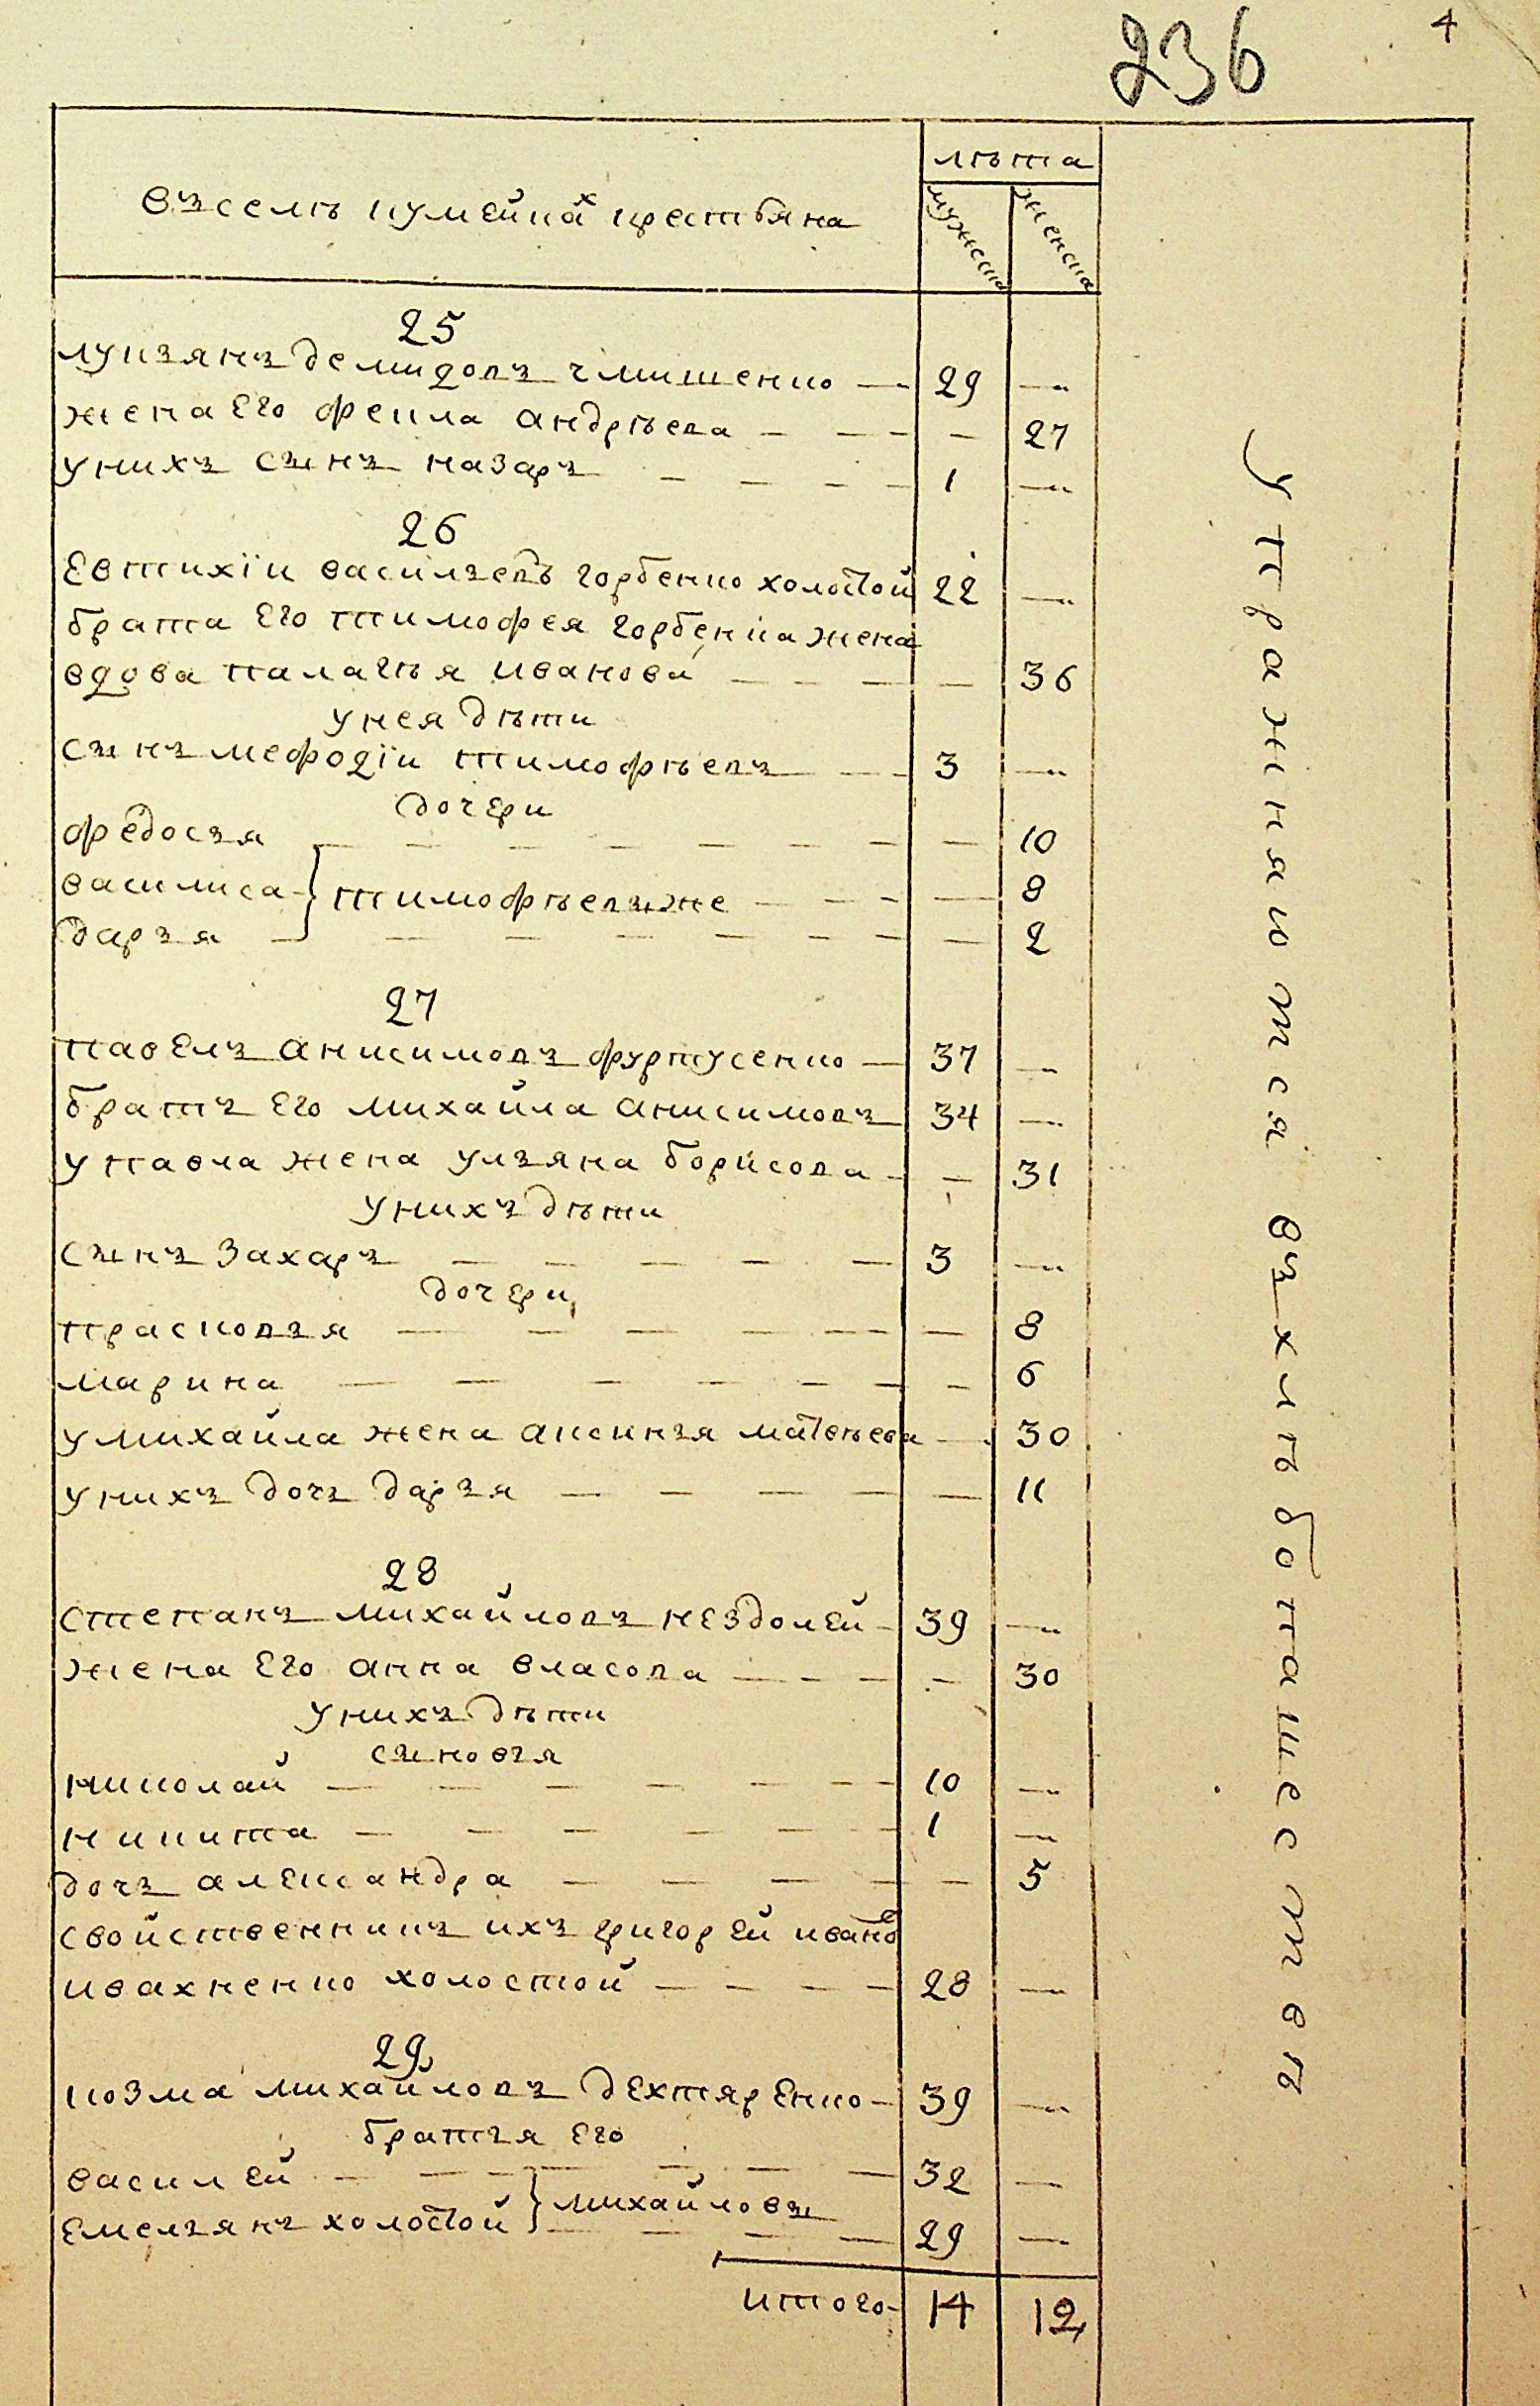 236 4
въселѣ кумейках крестьяна
лѣта
мужеска
женска
25
лукьянъ демидовъ клишенко 29 —
жена его фекла андрѣева — 27
унихъ сынъ назаръ 1 —
26
Евтихїи васильевъ горбенко холостой 22 —
брата его тимофея горбенка жена
вдова палагѣя иванова — 36
унея дѣти
сынъ мефодїи тимофѣевъ 3 —
дочери
федосья — 10
василиса } тимофѣевыже — 8
дарья — 2
27
павелъ анисимовъ фуртусенко 37 —
братъ его михайла анисимовъ 34 —
упавла жена ульяна борисова — 31
унихъ дѣти
сынъ захаръ 3 —
дочери
прасковья — 8
марина — 6
умихайла жена аксинья матвѣева — 30
унихъ дочь дарья — 11
28
степанъ михайловъ нездолей 39 —
жена его анна власова — 30
унихъ дѣти
сыновья
николай 10 —
никита 1 —
дочь александра — 5
свойственникъ ихъ григорей иванов
ивахненко холостой 28 —
29
козма михайловъ дехтяренко 39 —
братья его
василей 32 —
емельянъ холостой } михайловы 29 —
итого 14 12
Упражняются въхлѣбопашествѣ